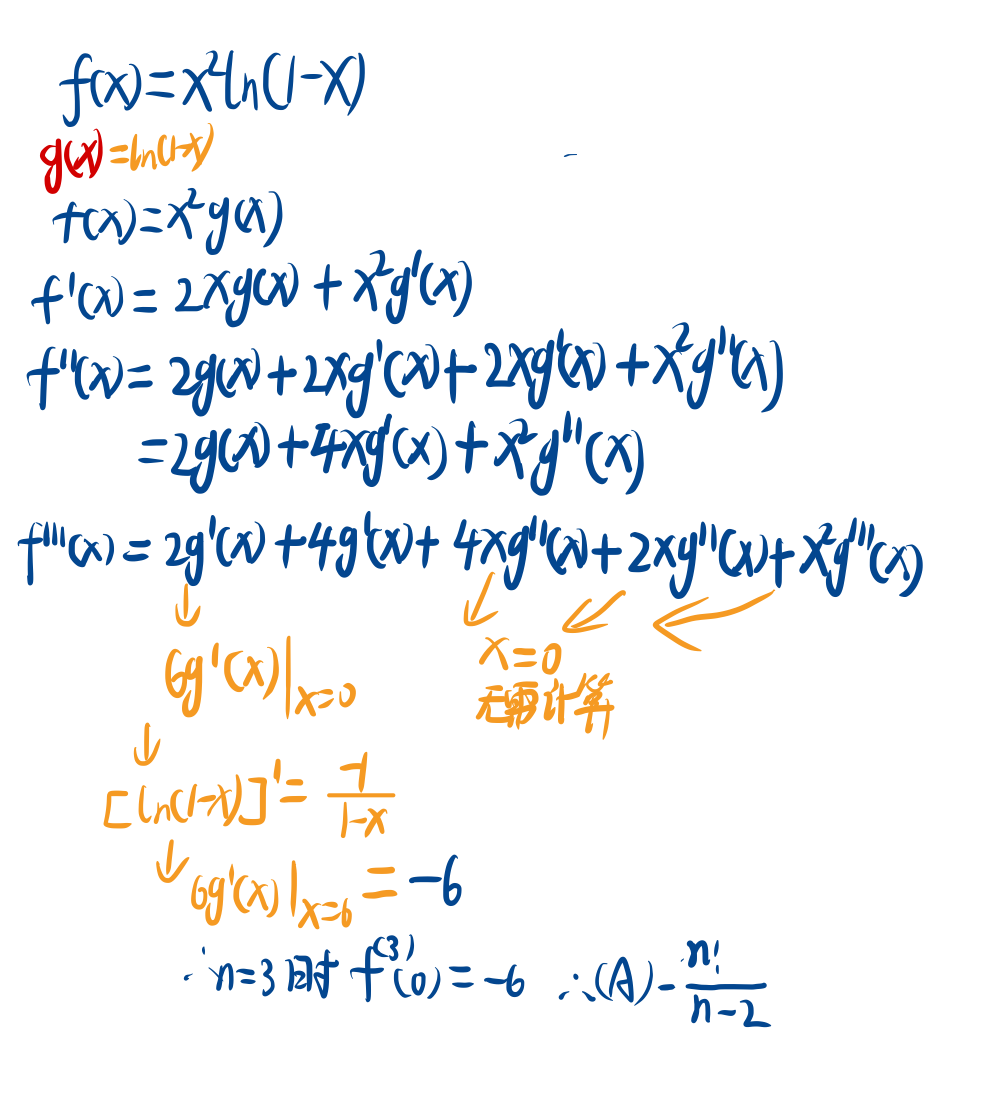 f(x)=x²ln(1-x)
g(x)=ln(1-x)
f(x)=x²g(x)
f'(x)=2xg(x)+x²g'(x)
f''(x)=2g(x)+2xg'(x)+2xg'(x)+x²g''(x)
=2g(x)+4xg'(x)+x²g''(x)
f'''(x)=2g'(x)+4g'(x)+4xg''(x)+2xg''(x)+x²g'''(x)
↓ ↙ ↙ ←
6g'(x)|x=0 x=0
无需计算
↓
[ln(1-x)]'=-1/(1-x)
↓
6g'(x)|x=0=-6
∴n=3时 f⁽³⁾(0)=-6 ∴(A)-n!/(n-2)